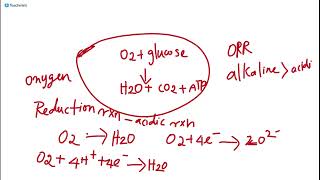 O2 + glucose
↓
H2O + CO2 + ATP
ORR
alkaline > acidi
Oxygen
Reduction rxn - acidic rxn
O2 → H2O
O2 + 4e⁻ → 2O²⁻
O2 + 4H⁺ + 4e⁻ → H2O